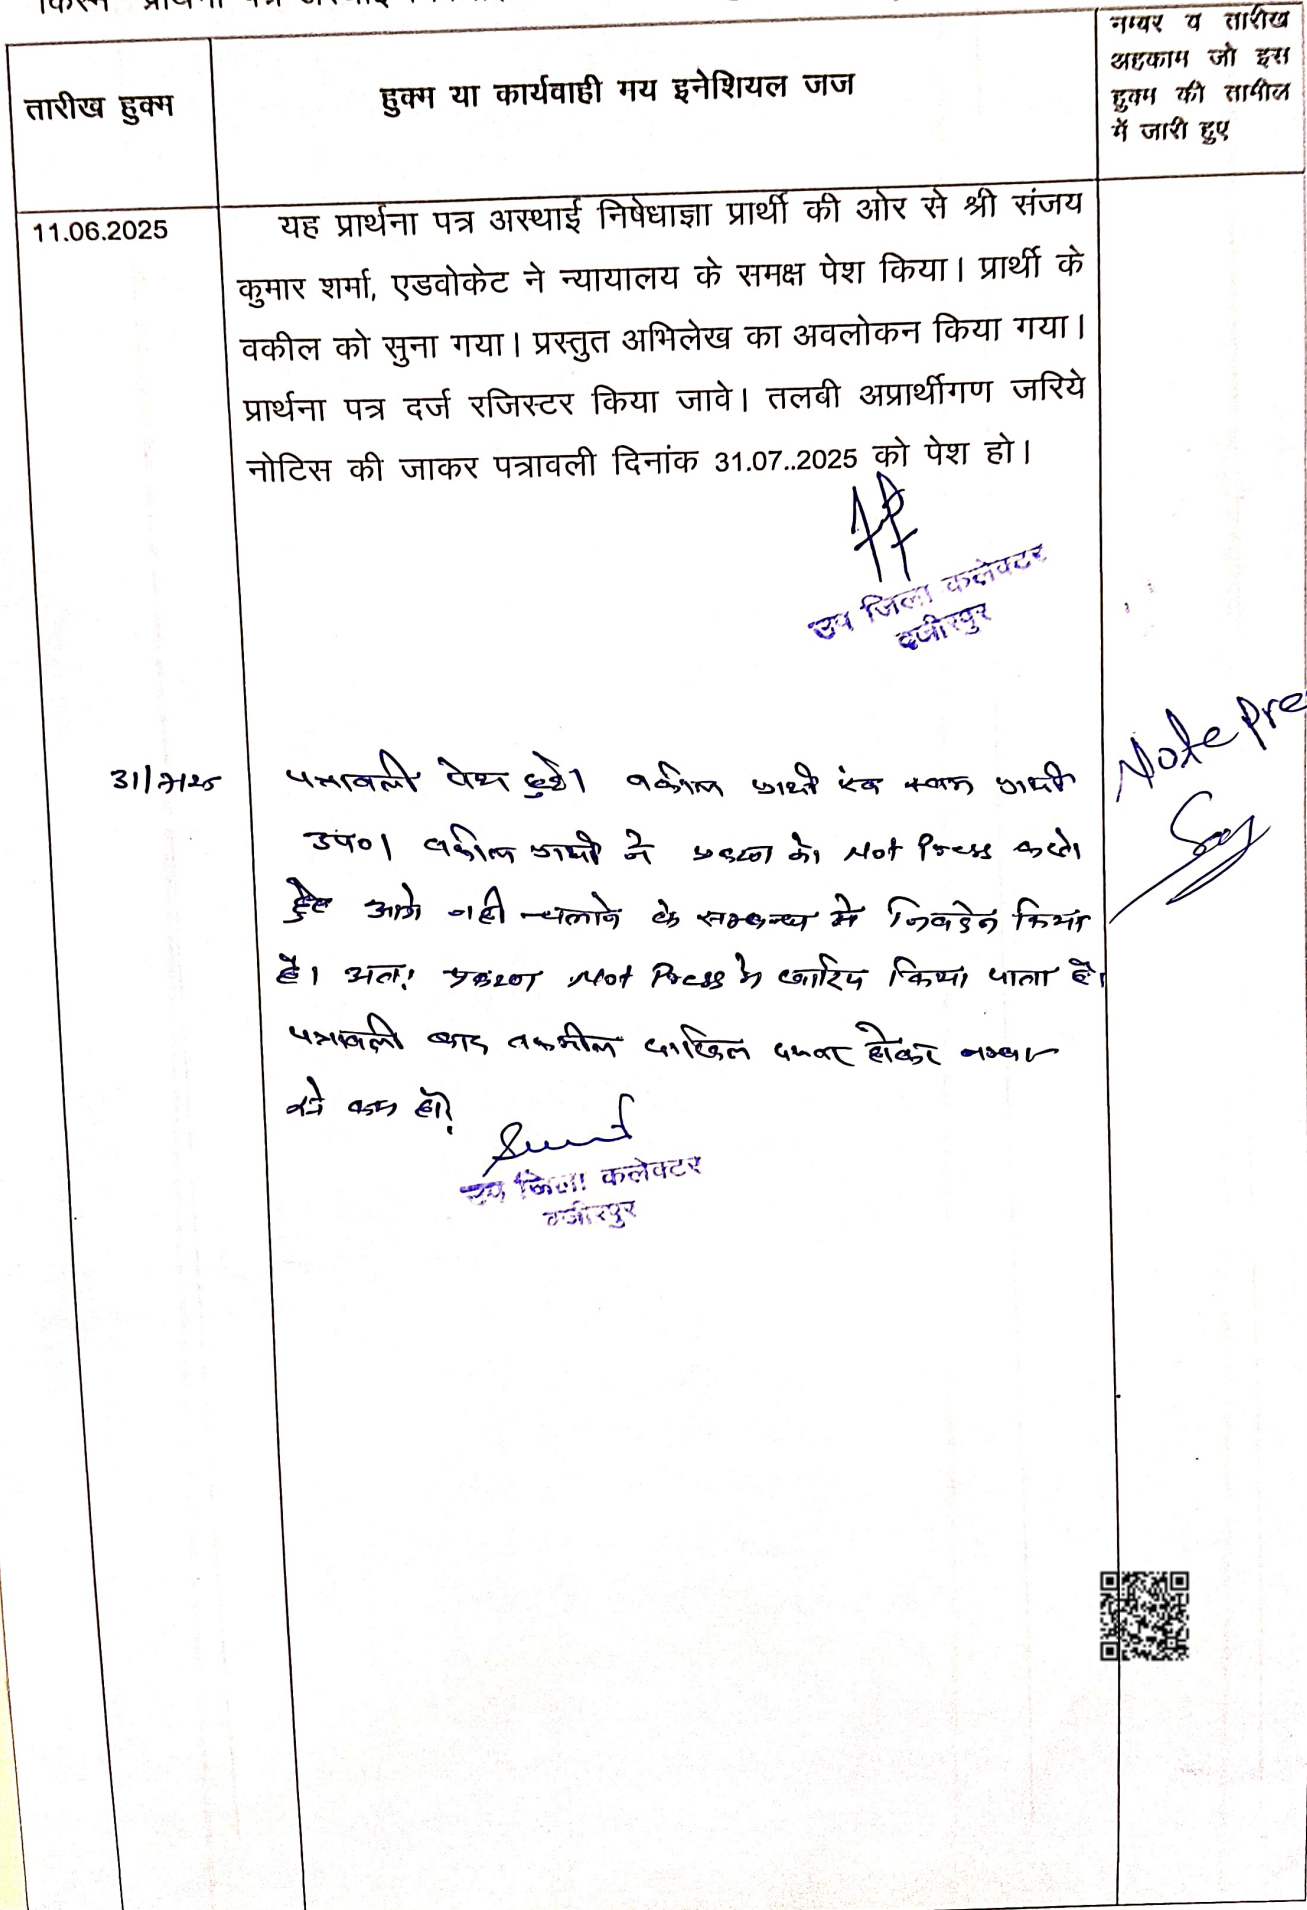 किस्म प्रार्थना पत्र अस्थाई
तारीख हुक्म
हुक्म या कार्यवाही मय इनेशियल जज
नम्बर व तारीख
अहकाम जो इस
हुक्म की तामील
में जारी हुए
11.06.2025
यह प्रार्थना पत्र अस्थाई निषेधाज्ञा प्रार्थी की ओर से श्री संजय
कुमार शर्मा, एडवोकेट ने न्यायालय के समक्ष पेश किया। प्रार्थी के
वकील को सुना गया। प्रस्तुत अभिलेख का अवलोकन किया गया।
प्रार्थना पत्र दर्ज रजिस्टर किया जावे। तलवी अप्रार्थीगण जरिये
नोटिस की जाकर पत्रावली दिनांक 31.07..2025 को पेश हो।
उप जिला कलेक्टर
वजीरपुर
Note Pre
31/7/25
पत्रावली पेश हुई। वकील प्रार्थी एवं स्वयं प्रार्थी
उप०। वकील प्रार्थी ने प्रकरण को Not Press करते
हुए आगे नही चलाने के सम्बन्ध में निवेदन किया
है। अतः प्रकरण Not Press में खारिज किया जाता है।
पत्रावली बाद तकमील दाखिल दफ्तर होकर नम्बर
से कम हो।
उप जिला कलेक्टर
वजीरपुर